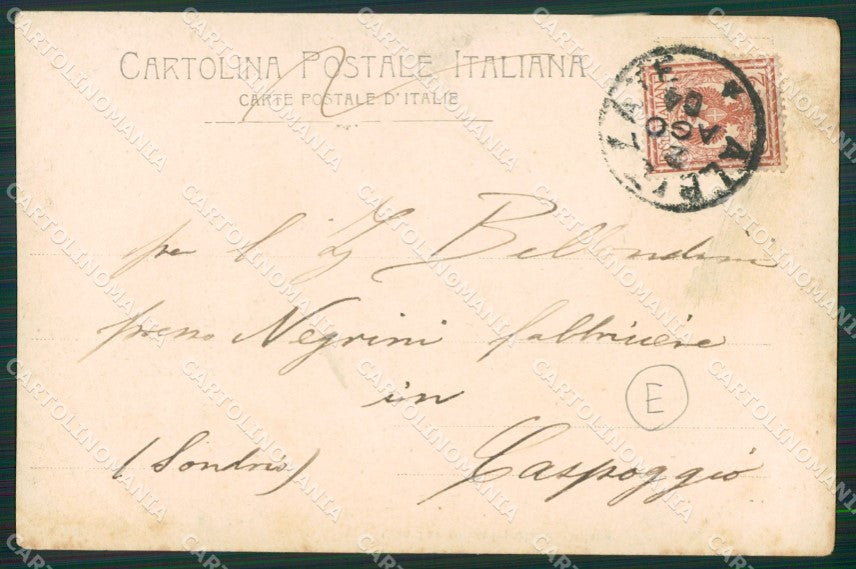 CARTOLINA POSTALE ITALIANA
CARTE POSTALE D'ITALIE
AGO
04
Bellondini
presso Negrini fabbriciere
in
E
(Sondrio)
Caspoggio
CARTOLINOMANIA